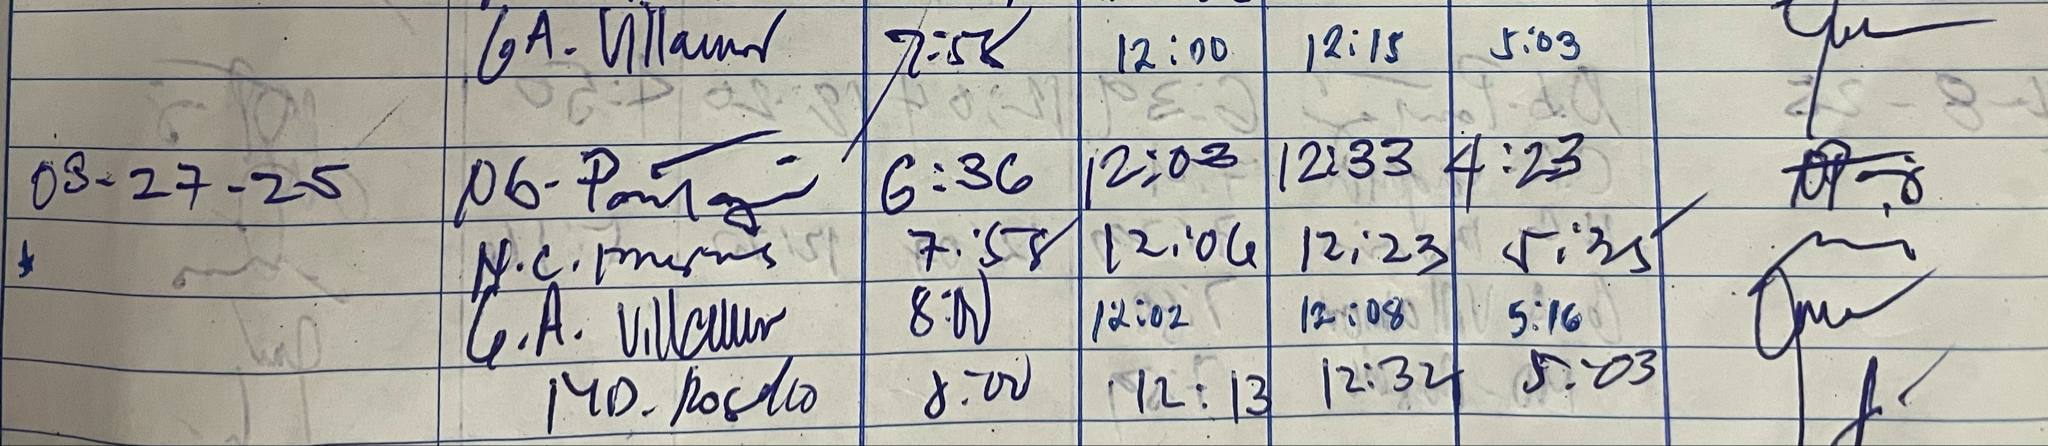 G A. Villamor 7:58 12:00 12:15 5:03
08-27-25 DG- 6:36 12:03 12:33 4:23
N.C. 7:58 12:06 12:23 5:35
G.A. Villamor 8:00 12:02 12:08 5:16
MD. Rosello 8:00 12:13 12:32 5:03